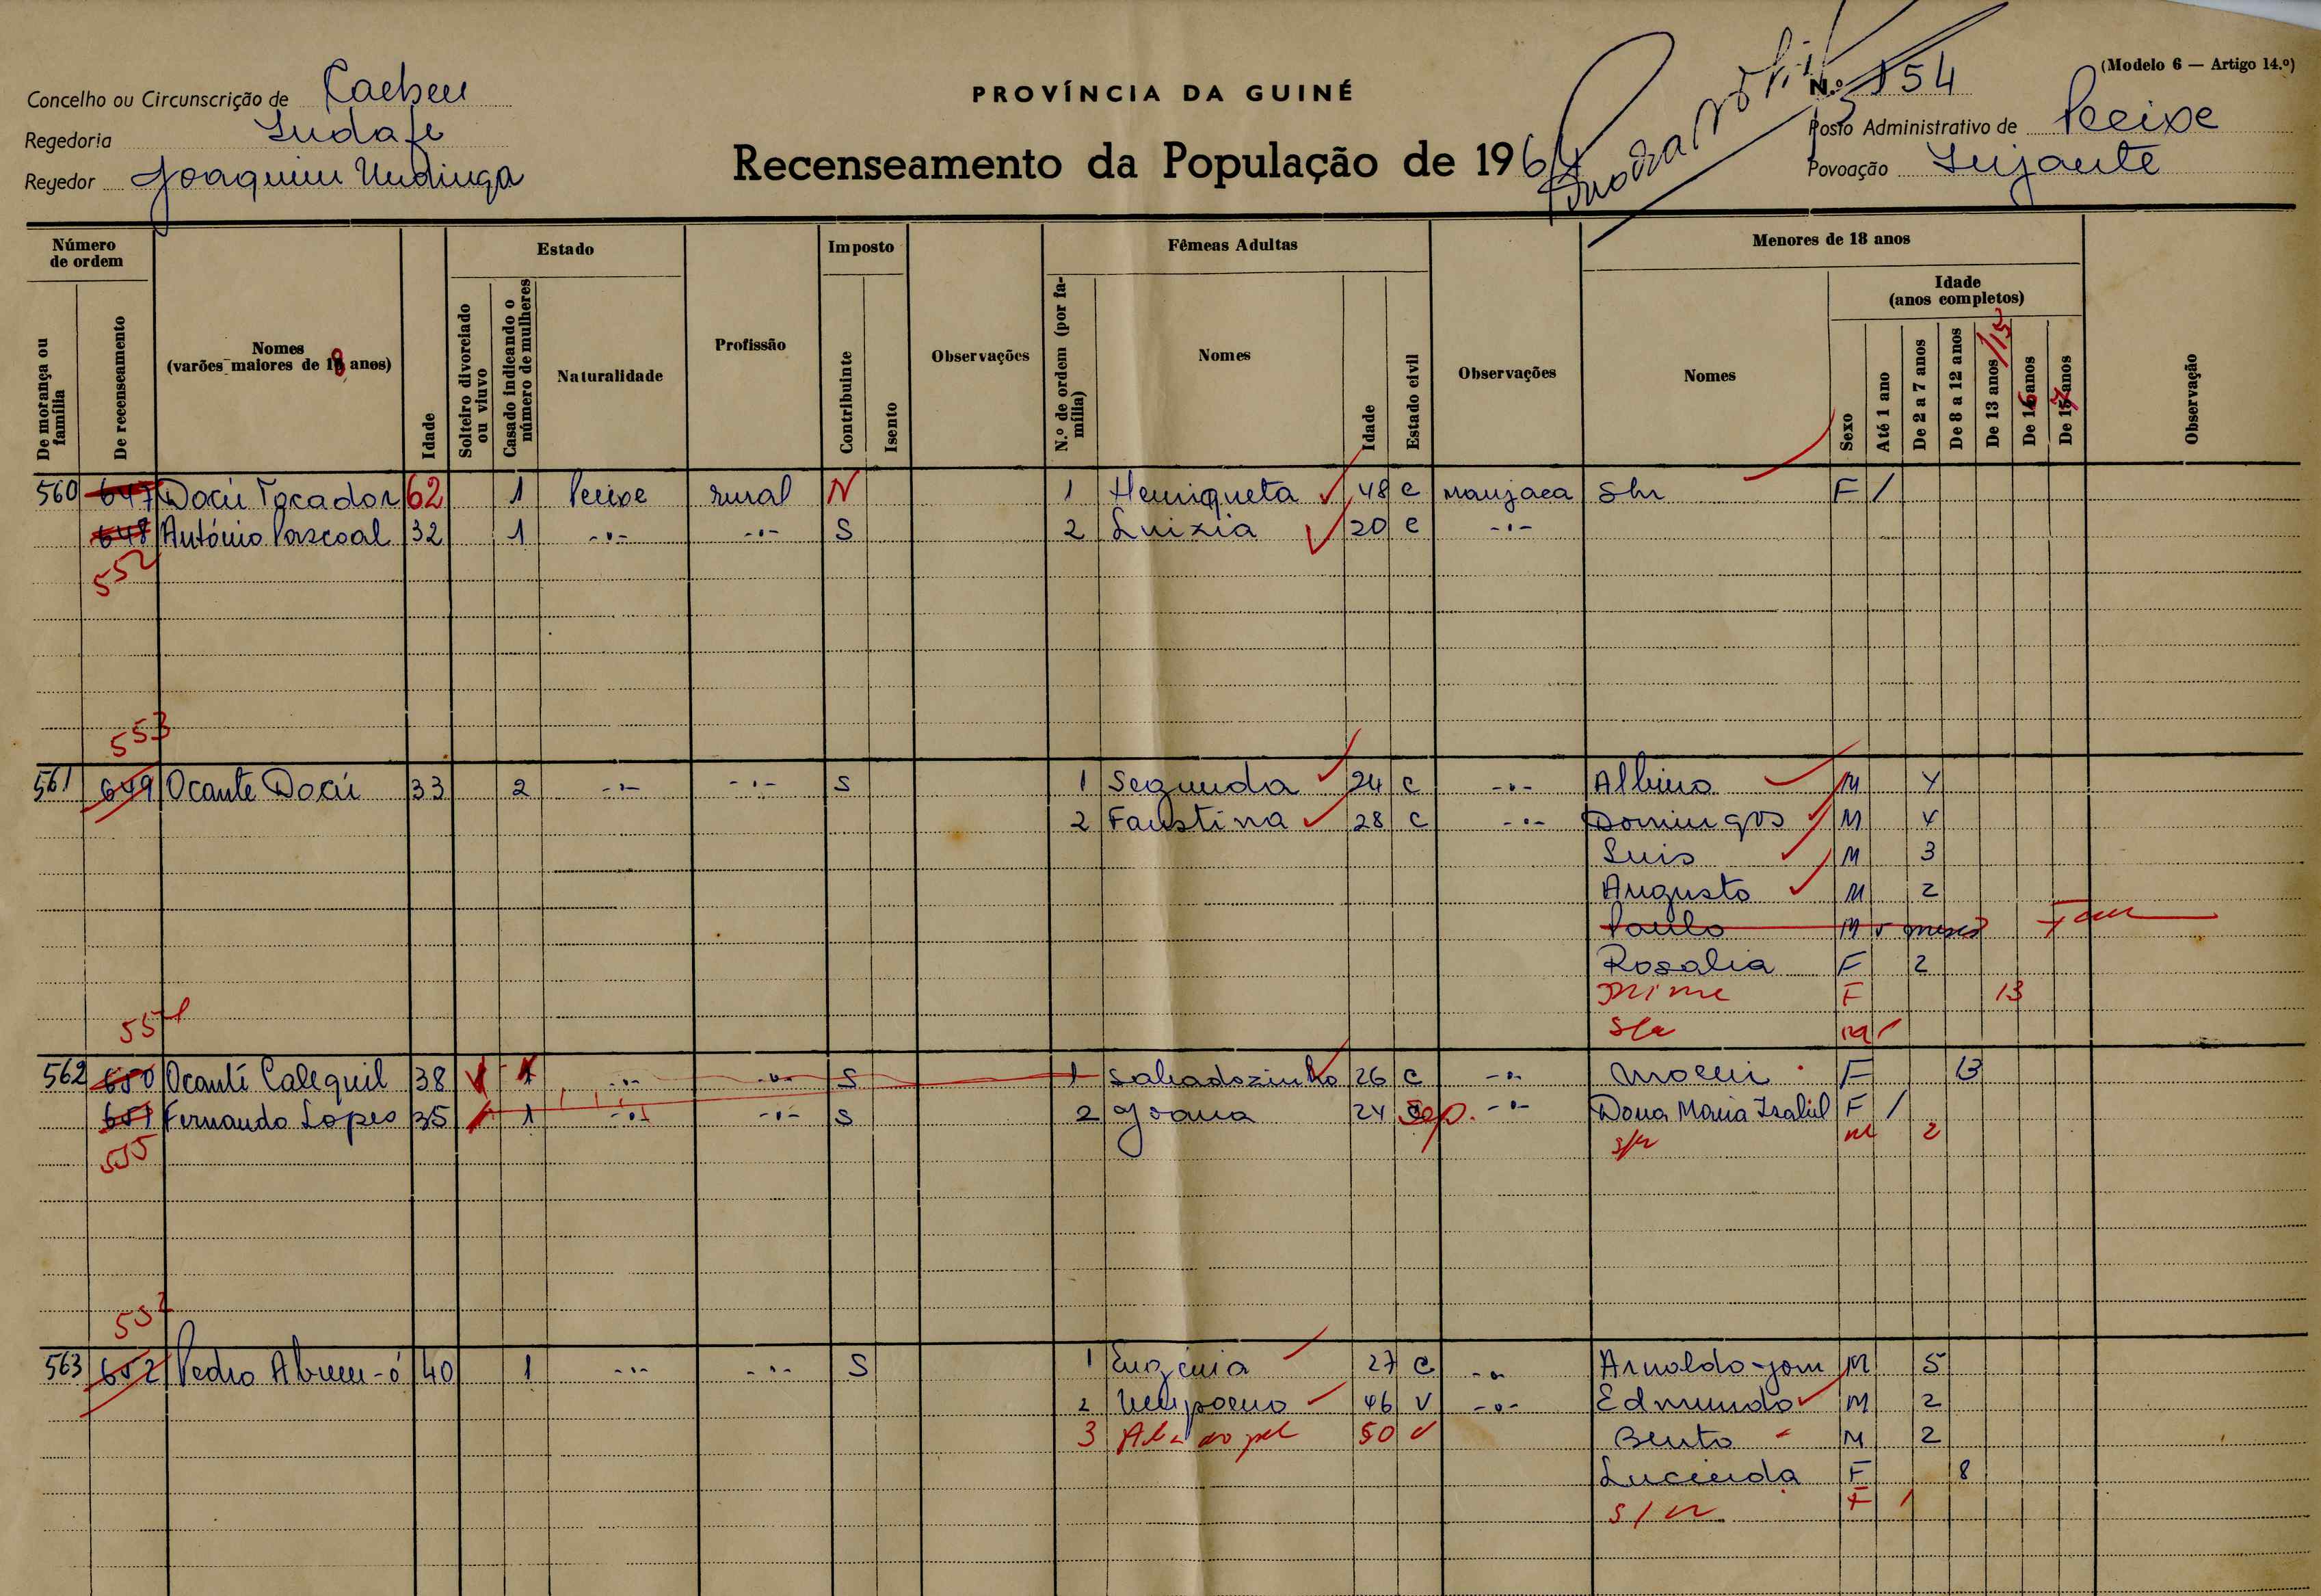 (Modelo 6 — Artigo 14.º)
PROVÍNCIA DA GUINÉ
N.º 154
Concelho ou Circunscrição de Cacheu
Regedoria
Posto Administrativo de Pecixe
Regedor Joaquim Undinga
Recenseamento da População de 196
Povoação
Número de ordem
Estado
Imposto
Fêmeas Adultas
Menores de 18 anos
Idade (anos completos)
De morança ou família
De recenseamento
Nomes (varões maiores de 18 anos)
Idade
Solteiro divorciado ou viuvo
Casado indicando o número de mulheres
Naturalidade
Profissão
Contribuinte
Isento
Observações
N.º de ordem (por família)
Nomes
Idade
Estado civil
Observações
Nomes
Sexo
Até 1 ano
De 2 a 7 anos
De 8 a 12 anos
De 13 anos /15
De 16 anos
De 17 anos
Observação
560 647 Docú Tocador 62 1 Pecixe rural N 1 Henriqueta 48 C manjaca S/n F /
648 António Pascoal 32 1 -"- -"- S 2 Luixia 20 C -"-
552
553
561 649 Ocante Docú 33 2 -"- -"- S 1 Segunda 24 C -"- Albino M 4
2 Faustina 28 C -"- Domingos M 4
Luis M 3
Augusto M 2
Paulo M meses
Rosalia F 2
F 13
554
562 650 Ocanti Calequil 38 -"- -"- S 1 Sabadozinho 26 C -"- F 13
651 Fernando Lopes 35 1 -"- -"- S 2 Joana 24 Sep. -"- Dona Maria Isabil F /
555 s/n M 2
563 652 Pedro 40 1 -"- -"- S 1 Eugénia 27 C -"- Arnoldo M 5
2 46 V -"- Edmundo M 2
3 50 V Bento M 2
Lucinda F 8
s/n F 1